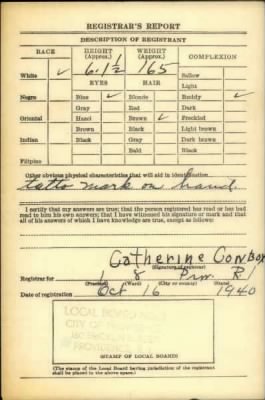 REGISTRAR'S REPORT
DESCRIPTION OF REGISTRANT
RACE HEIGHT (Approx.) WEIGHT (Approx.) COMPLEXION
White ✓ 6. 1½ 165 Sallow
EYES HAIR Light
Negro Blue ✓ Blonde Ruddy ✓
Gray Red Dark
Oriental Hazel Brown ✓ Freckled
Brown Black Light brown
Indian Black Gray Dark brown
Bald Black
Filipino
Other obvious physical characteristics that will aid in identification
tatto mark on hand.
I certify that my answers are true; that the person registered has read or has had
read to him his own answers; that I have witnessed his signature or mark and that
all of his answers of which I have knowledge are true, except as follows:
Catherine
(Signature of registrar)
Registrar for 1 8 Prov. R.I.
(Precinct) (Ward) (City or county) (State)
Date of registration Oct 16 1940
LOCAL BOARD
CITY OF
PROVIDENCE
(STAMP OF LOCAL BOARD)
(The stamp of the Local Board having jurisdiction of the registrant
shall be placed in the above space.)